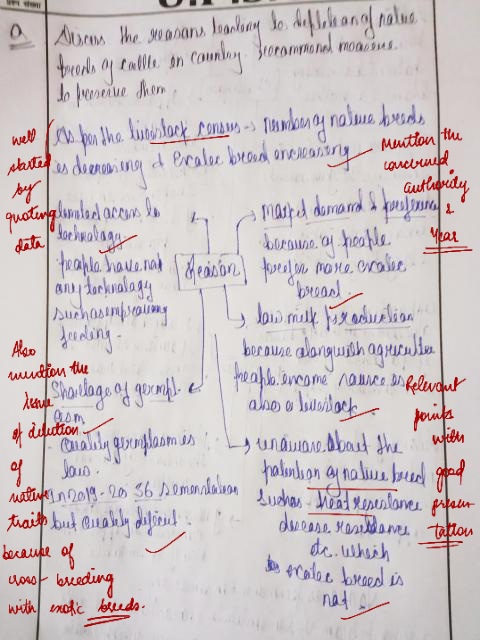 Q
Discuss the reasons leading to depletion of native
breeds of cattle in country. recommend measure
to preserve them.
As per the livestock census → number of native breeds
is decreasing & Exotic breed increasing
well
started
by
quoting
data
Mention the
concerned
authority
&
Year
limited access to
technology
people have not
any technology
such as
feeding.
Reason
Market demand & preference
because of people
prefer more exotic
breed
low milk production
because along with agriculture
people income source is
also a livestock
Also
mention the
issue
of dilution
of
native
traits
because of
cross-breeding
with exotic breeds.
Shortage of germpl-
asm
- Quality germplasm is
low.
In 2019-20 36 semen station
but Quality deficit.
unaware about the
potention of native breed
Such as - heat resistance
disease resistance
etc. which
exotic breed is
not
Relevant
points
with
good
presen-
tation